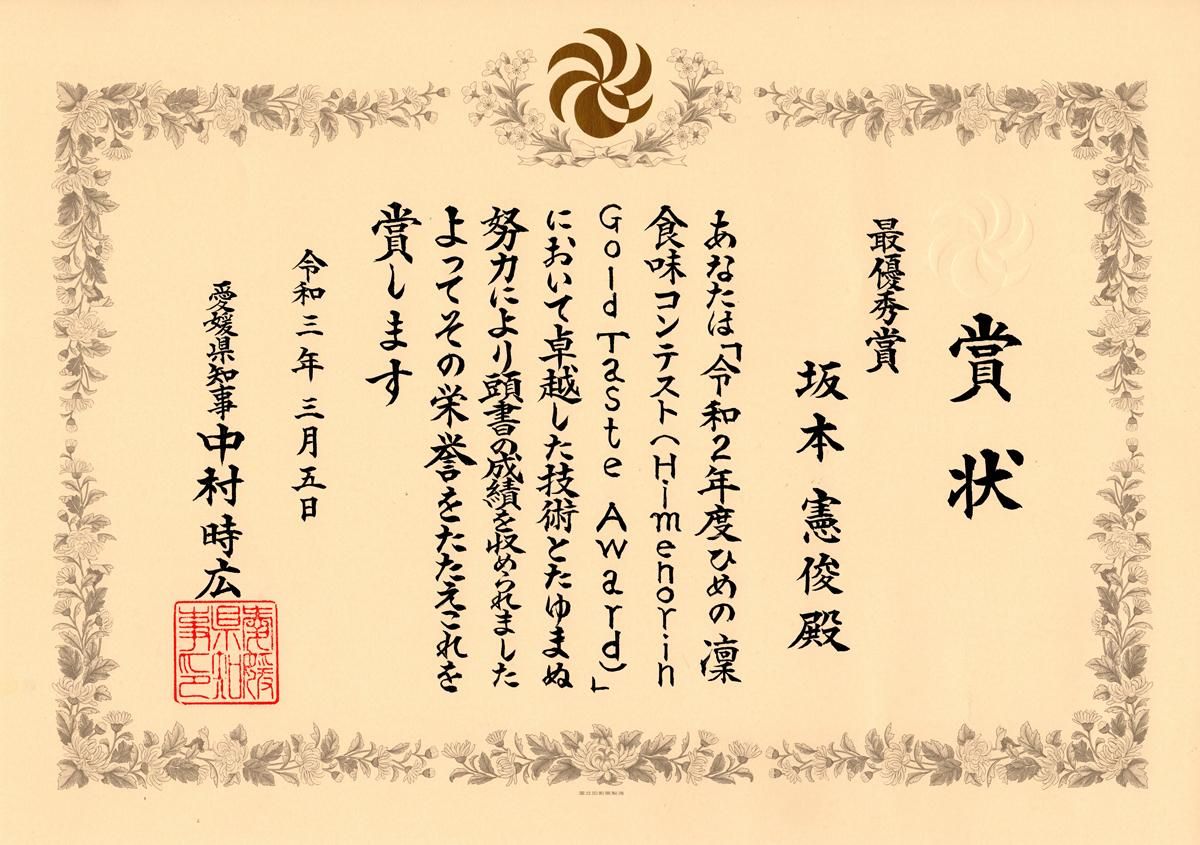 賞状
最優秀賞
坂本憲俊殿
あなたは「令和2年度ひめの凜
食味コンテスト(Himenorin
Gold Taste Award)」
において卓越した技術とたゆまぬ
努力により頭書の成績を収められました
よってその栄誉をたたえこれを
賞します
令和三年三月五日
愛媛県知事 中村時広
愛媛
県知
事印